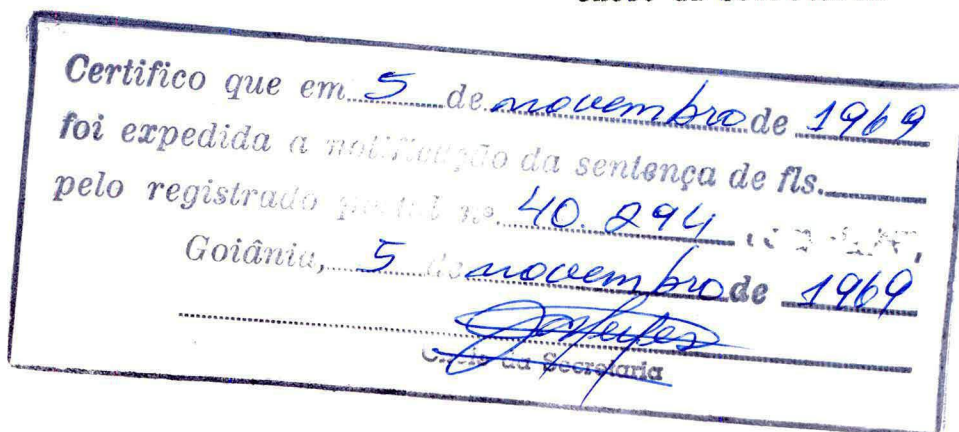 Certifico que em 5 de novembro de 1969
foi expedida a notificação da sentença de fls.
pelo registrado postal nº 40.294
Goiânia, 5 de novembro de 1969
Chefe da Secretaria